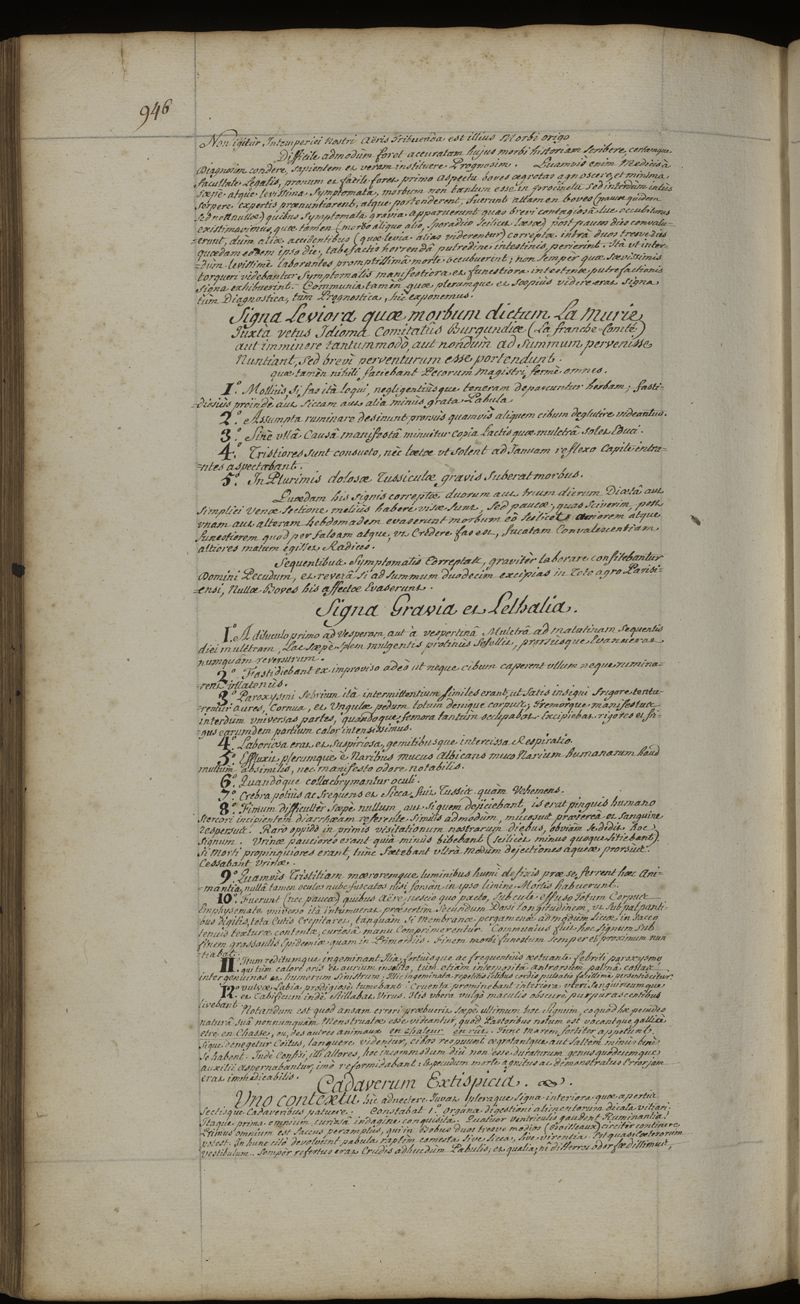 946
Non igitur Intemperiei Nostri Aëris Tribuenda est illius Morbi origo
Difficile admodum foret accuratam hujus morbi historiam scribere, certamque
Diagnosim condere, sapientem et veram instituere Prognosim. Quamvis enim Medicinæ
facultate Legalis, pronum et facile foret, primo aspectu boves ægrotas agnoscere, et minima
sæpe atque levissima symptomata, morbum non tantum esse in procinctu sed interdum intus
serpere expertis pronuntiarent, atque portenderent; fuerunt attamen boves (paucæ quidem
sed nonnullæ) quibus symptomata gravia apparuerunt quas brevi contagiosâ lue occubituras
existimavimus, quæ tamen (morbo aliquo alio, sporadico scilicet læsæ) post paucos dies convalu-
-erunt, dum aliæ accidentibus (quæ levia alias viderentur) correptæ intrà duos tresve dies
quædam eodem ipso die, tabefactis horrendâ putredine intestinis, perierint. Ità ut inter-
-dum levissime laborantes promptissimâ morte occubuerint; non semper quæ sævissimis
torqueri videbantur symptomatis manifestiora et funestiora internæ putrefactionis
signa exhibuerint. Communia tamen quæ plerumque et sæpius videre erat signa
tùm Diagnostica, tùm Prognostica, hìc exponemus.
Signa Leviora quæ morbum dictum La Murie
Juxtà vetus Idioma Comitatûs Burgundiæ (La franche-Comté)
aut imminere tantummodo, aut nondum ad Summum pervenisse
Nuntiant, sed brevi perventurum esse portendunt.
quæ tamen nihili faciebant Pecorum Magistri, fermè omnes.
1.° Molliùs si fas ità loqui, negligentiùsque teneram depascuntur herbam; fasti-
-diosius proindè aut siccam aut alia minùs grata Pabula.
2.° Assumpta ruminare desinunt prorsùs quamvis aliquem cibum deglutire videantur.
3.° Sine ullâ Causâ manifestâ minuitur copia Lactis quæ mulctrâ solet Educi.
4.° Tristiores sunt consueto, nec lætæ ut solent ad Januam reflexo Capite intra-
-ntes aspectabant.
5.° In Plurimis dolosæ Tussiculæ, gravis suberat morbus.
Quædam his signis correptæ duorum aut trium dierum Diætâ aut
simplici Venæ sectione meliùs habere visæ sunt, sed paucæ, quas sciverim, post
unam aut alteram hebdomadem evaserunt morbum eò scilicet acriorem atque
funestiorem quod per falsam atque, ut Credere fas est, fucatam Convalescentiam
altiores malum egisset Radices.
Sequentibus symptomatis Correptas, graviter laborare confitebantur
Domini Pecudum, et reverâ si ad summum duodecim excipias in Toto agro Parisi-
-ensi, Nullæ Boves his affectæ Evaserunt.
Signa Gravia et Lethalia.
1.° A diluculo primo ad Vesperam, aut à vespertinâ Mulctrâ ad matutinam Sequentis
diei mulctram, Lac sæpè spem mulgentis protinùs fefellit, prorsùsque Evanuerat
numquam reversurum.
2.° Fastidiebant ex improviso adeò ut neque cibum caperent ullum neque rumina-
-rent
3.° Paroxysmi febrium ità intermittentium similes erant, ut satis insigni frigore tenta-
-rentur aures, Cornua, et Ungulæ pedum totum denique corpus; Tremorque manifestus
interdum universas partes, quandòque femora tantùm Excipiebat rigores et fri-
-gus earumdem partium calor intensissimus.
4.° Laboriosa erat, et suspiriosa, gemitibusque intercissa Respiratio.
5.° Effluxit plerumque è Naribus mucus albicans muco Narium humanarum haud
multùm absimilis, nec manifesto odore notabilis.
6.° Quandòque collachrymantur oculi.
7.° Crebra potiùs ac frequens et sicca fuit Tussis quam Vehemens.
8.° Fimum difficulter sæpè nullum, aut si quem dejiciebant, is erat pinguis humano
stercori incipientem diarrhæam referente similis admodum, mucosus præterea et Sanguine
respersus. Raro oppidò in primis visitationum nostrarum diebus, obviam se dedit hoc
Signum. Urinæ pauciores erant quia minùs bibebant (scilicet minùs quoque sitiebant)
Si Morti propinquiores erant, tunc fœtebant ultrà modum dejectiones aqueæ prorsùs
Cessabant Urinæ.
9.° Quamvis Tristitiam mœroremque luminibus humi defixis præ se ferrent hæc Ani-
-mantia, nullâ tamen oculos nube fuscatos nisi forsan in ipso limine Mortis habuerunt.
10.° Fuerunt (nec paucæ) quibus Aëre, nescio quo pacto, subcutè effuso Totum Corpus
Emphysemate universo ità intumuerat præsertim secundùm Dorsi longitudinem, ut subtus, panti-
-bus digitis, tota Cutis Crepitaret, tanquam si Membranæ pergameneæ admodum siccæ in sacco
tenuis texturæ contentæ, curiosâ manu Comprimerentur. Communius fuit hoc signum sub
finem grassantis Epidemiæ quam in Primordiis. Finem morbi funestum semper et proximum nun-
-tiabat.
11.° Itum reditumque ingeminant Ilia, fortiùsque ac frequentiùs æstuante febrili paroxysmo
qui tùm calore oris et aurium insolito, tùm etiam interpositâ anteriorum palmâ, costas
inter quinimas et humerum sinistrum, illic ingeminatâ repetitis ictibus cordis pulsatio facillimè præsentiebatur.
12.° vulvæ Labia prodigiosè tumebant. Cruenta prominebant interiora uteri Sanguineumque
et Cabificum indè stillabat Virus. His ubera vulgò maculis obscurè purpurascentibus
livebant.
Notandum est quod ansam errori præbuerit sæpè ultimum hoc Signum, eo quod hæ pecudes
naturâ suâ nonnunquam Menstruatæ esse videantur, quod Pastoribus notum est vocantque gallicè
être en Chasse, ou, des autres animaux en chaleur, en rut. Tunc Marem fortiter appetunt,
sique denegetur Coitus, languere videntur, cibos respuunt ægrotantque aut saltem minùs benè
se habent. Indè Confisi, illi Altores, hoc incommodum diù non esse duraturum genus quodcumque
auxilii aspernabantur, imò reformidabant: sæpecudum morte agnitus ac demonstratus Error jam
erat immedicabilis.
Cadaverum Extispicia.
Uno contextu hìc adnectere Juvat pleraque signa interiora quæ apertis
sectisque Cadaveribus patuere. Constabat 1.° Organa digestioni alimentorum dicata vitiari.
Itaque prima omnium, curiosâ indagine conquisita. Quatuor ventriculis gaudent Ruminantia.
Primus omnium est Saccus peramplus, qui in Bobus duos tresve modios (Boisseaux) circiter continere
potest. In hunc citò devolvunt pabula raptim comesta sive sicca, sive virentia. Est quasi Cæterorum
vestibulum. Semper refertus erat Crudis adhucdum Pabulis, et qualia, ni differret odor fœdissimus,